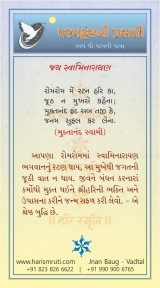 પરમહંસની પ્રસાદી
સ્વને થી પરમની યાત્રા
જય સ્વામિનારાયણ
રોમરોમ મેં રટન હરિ કા,
જૂઠ ન મુખસો કહેના;
મુક્તાનંદ ફંદ સબ તજી કે,
જનમ સુફલ કર લેના.
(મુક્તાનંદ સ્વામી)
આપણા રોમરોમમાં સ્વામિનારાયણ
ભગવાનનું રટણ થાય, આ મુખેથી જગતની
જૂઠી વાત ન થાય. જીવને બંધન કરનારાં
કર્મોથી મુક્ત થઈને શ્રીહરિની ભક્તિ અને
ઉપાસના કરીને જન્મ સફળ કરી લેવો. - એ
શ્રેષ્ઠ બુદ્ધિ છે.
॥ હરિ સ્મૃતિ ॥
www.harismruti.com Jnan Baug - Vadtal
+91 823 826 6622 | +91 990 900 6765